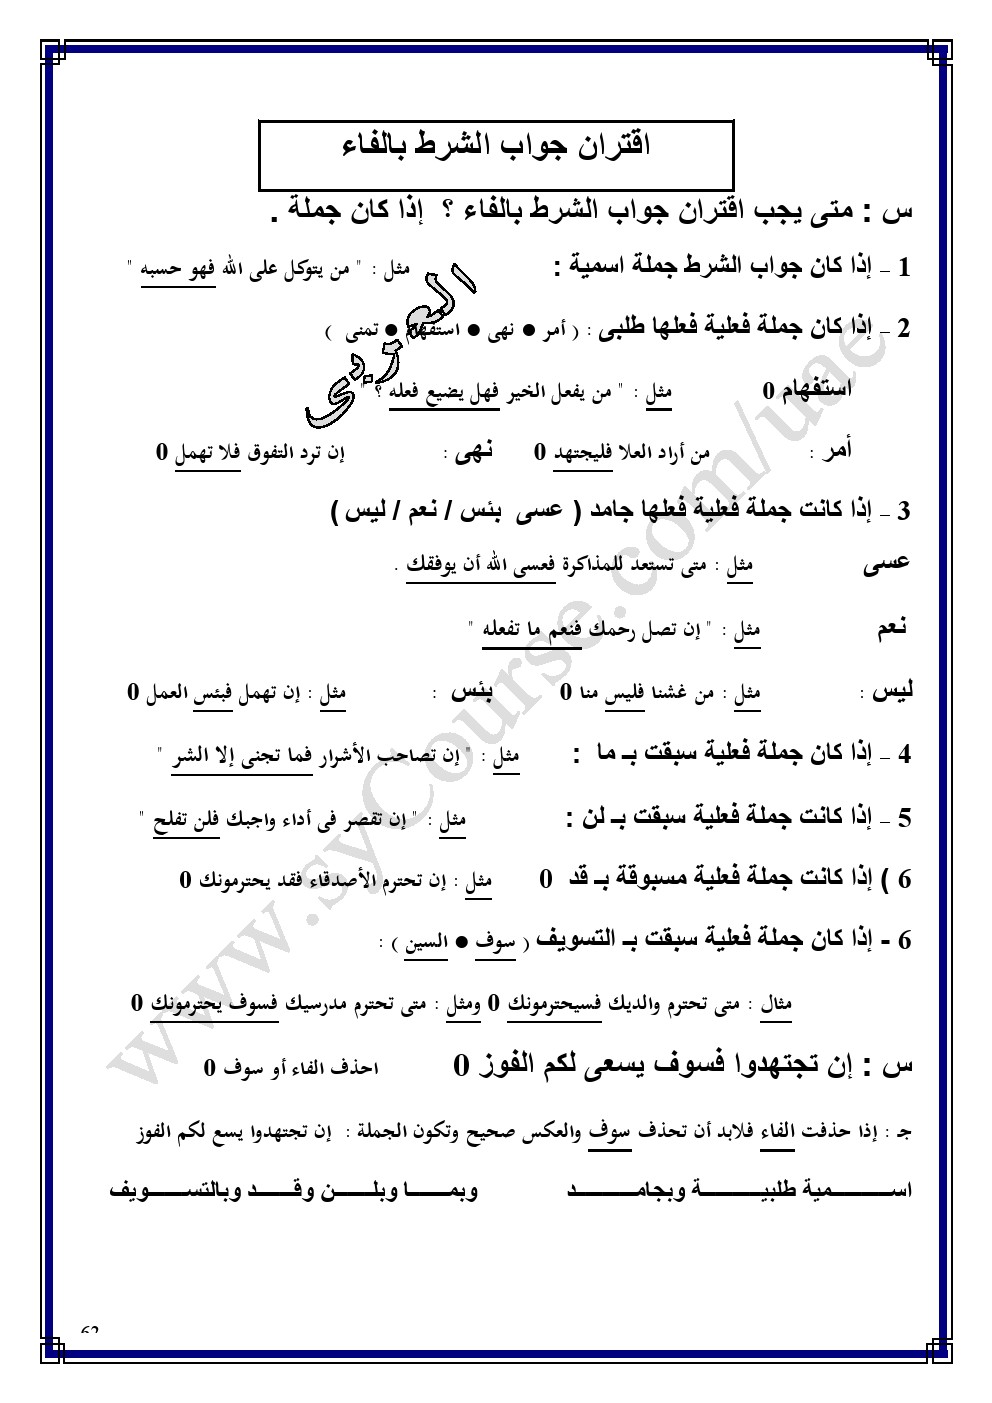 اقتران جواب الشرط بالفاء
س : متى يجب اقتران جواب الشرط بالفاء ؟ إذا كان جملة .
1 – إذا كان جواب الشرط جملة اسمية : مثل : " من يتوكل على الله فهو حسبه "
2 – إذا كان جملة فعلية فعلها طلبى : ( أمر ● نهى ● استفهام ● تمنى )
استفهام 0 مثل : " من يفعل الخير فهل يضيع فعله ؟ "
أمر : من أراد العلا فليجتهد 0 نهى : إن ترد التفوق فلا تهمل 0
3 – إذا كانت جملة فعلية فعلها جامد ( عسى بئس / نعم / ليس )
عسى مثل : متى تستعد للمذاكرة فعسى الله أن يوفقك .
نعم مثل : " إن تصل رحمك فنعم ما تفعله "
ليس : مثل : من غشنا فليس منا 0 بئس : مثل : إن تهمل فبئس العمل 0
4 – إذا كان جملة فعلية سبقت بـ ما : مثل : " إن تصاحب الأشرار فما تجنى إلا الشر "
5 – إذا كانت جملة فعلية سبقت بـ لن : مثل : " إن تقصر فى أداء واجبك فلن تفلح "
6 ) إذا كانت جملة فعلية مسبوقة بـ قد 0 مثل : إن تحترم الأصدقاء فقد يحترمونك 0
6 - إذا كان جملة فعلية سبقت بـ التسويف ( سوف ● السين ) :
مثال : متى تحترم والديك فسيحترمونك 0 ومثل : متى تحترم مدرسيك فسوف يحترمونك 0
س : إن تجتهدوا فسوف يسعى لكم الفوز 0 احذف الفاء أو سوف 0
جـ : إذا حذفت الفاء فلابد أن تحذف سوف والعكس صحيح وتكون الجملة : إن تجتهدوا يسع لكم الفوز
اســـــمية طلبيـــــة وبجامـــــد وبمـــا وبلـــن وقـــد وبالتســـويف
62
www.syCourse.com/uae